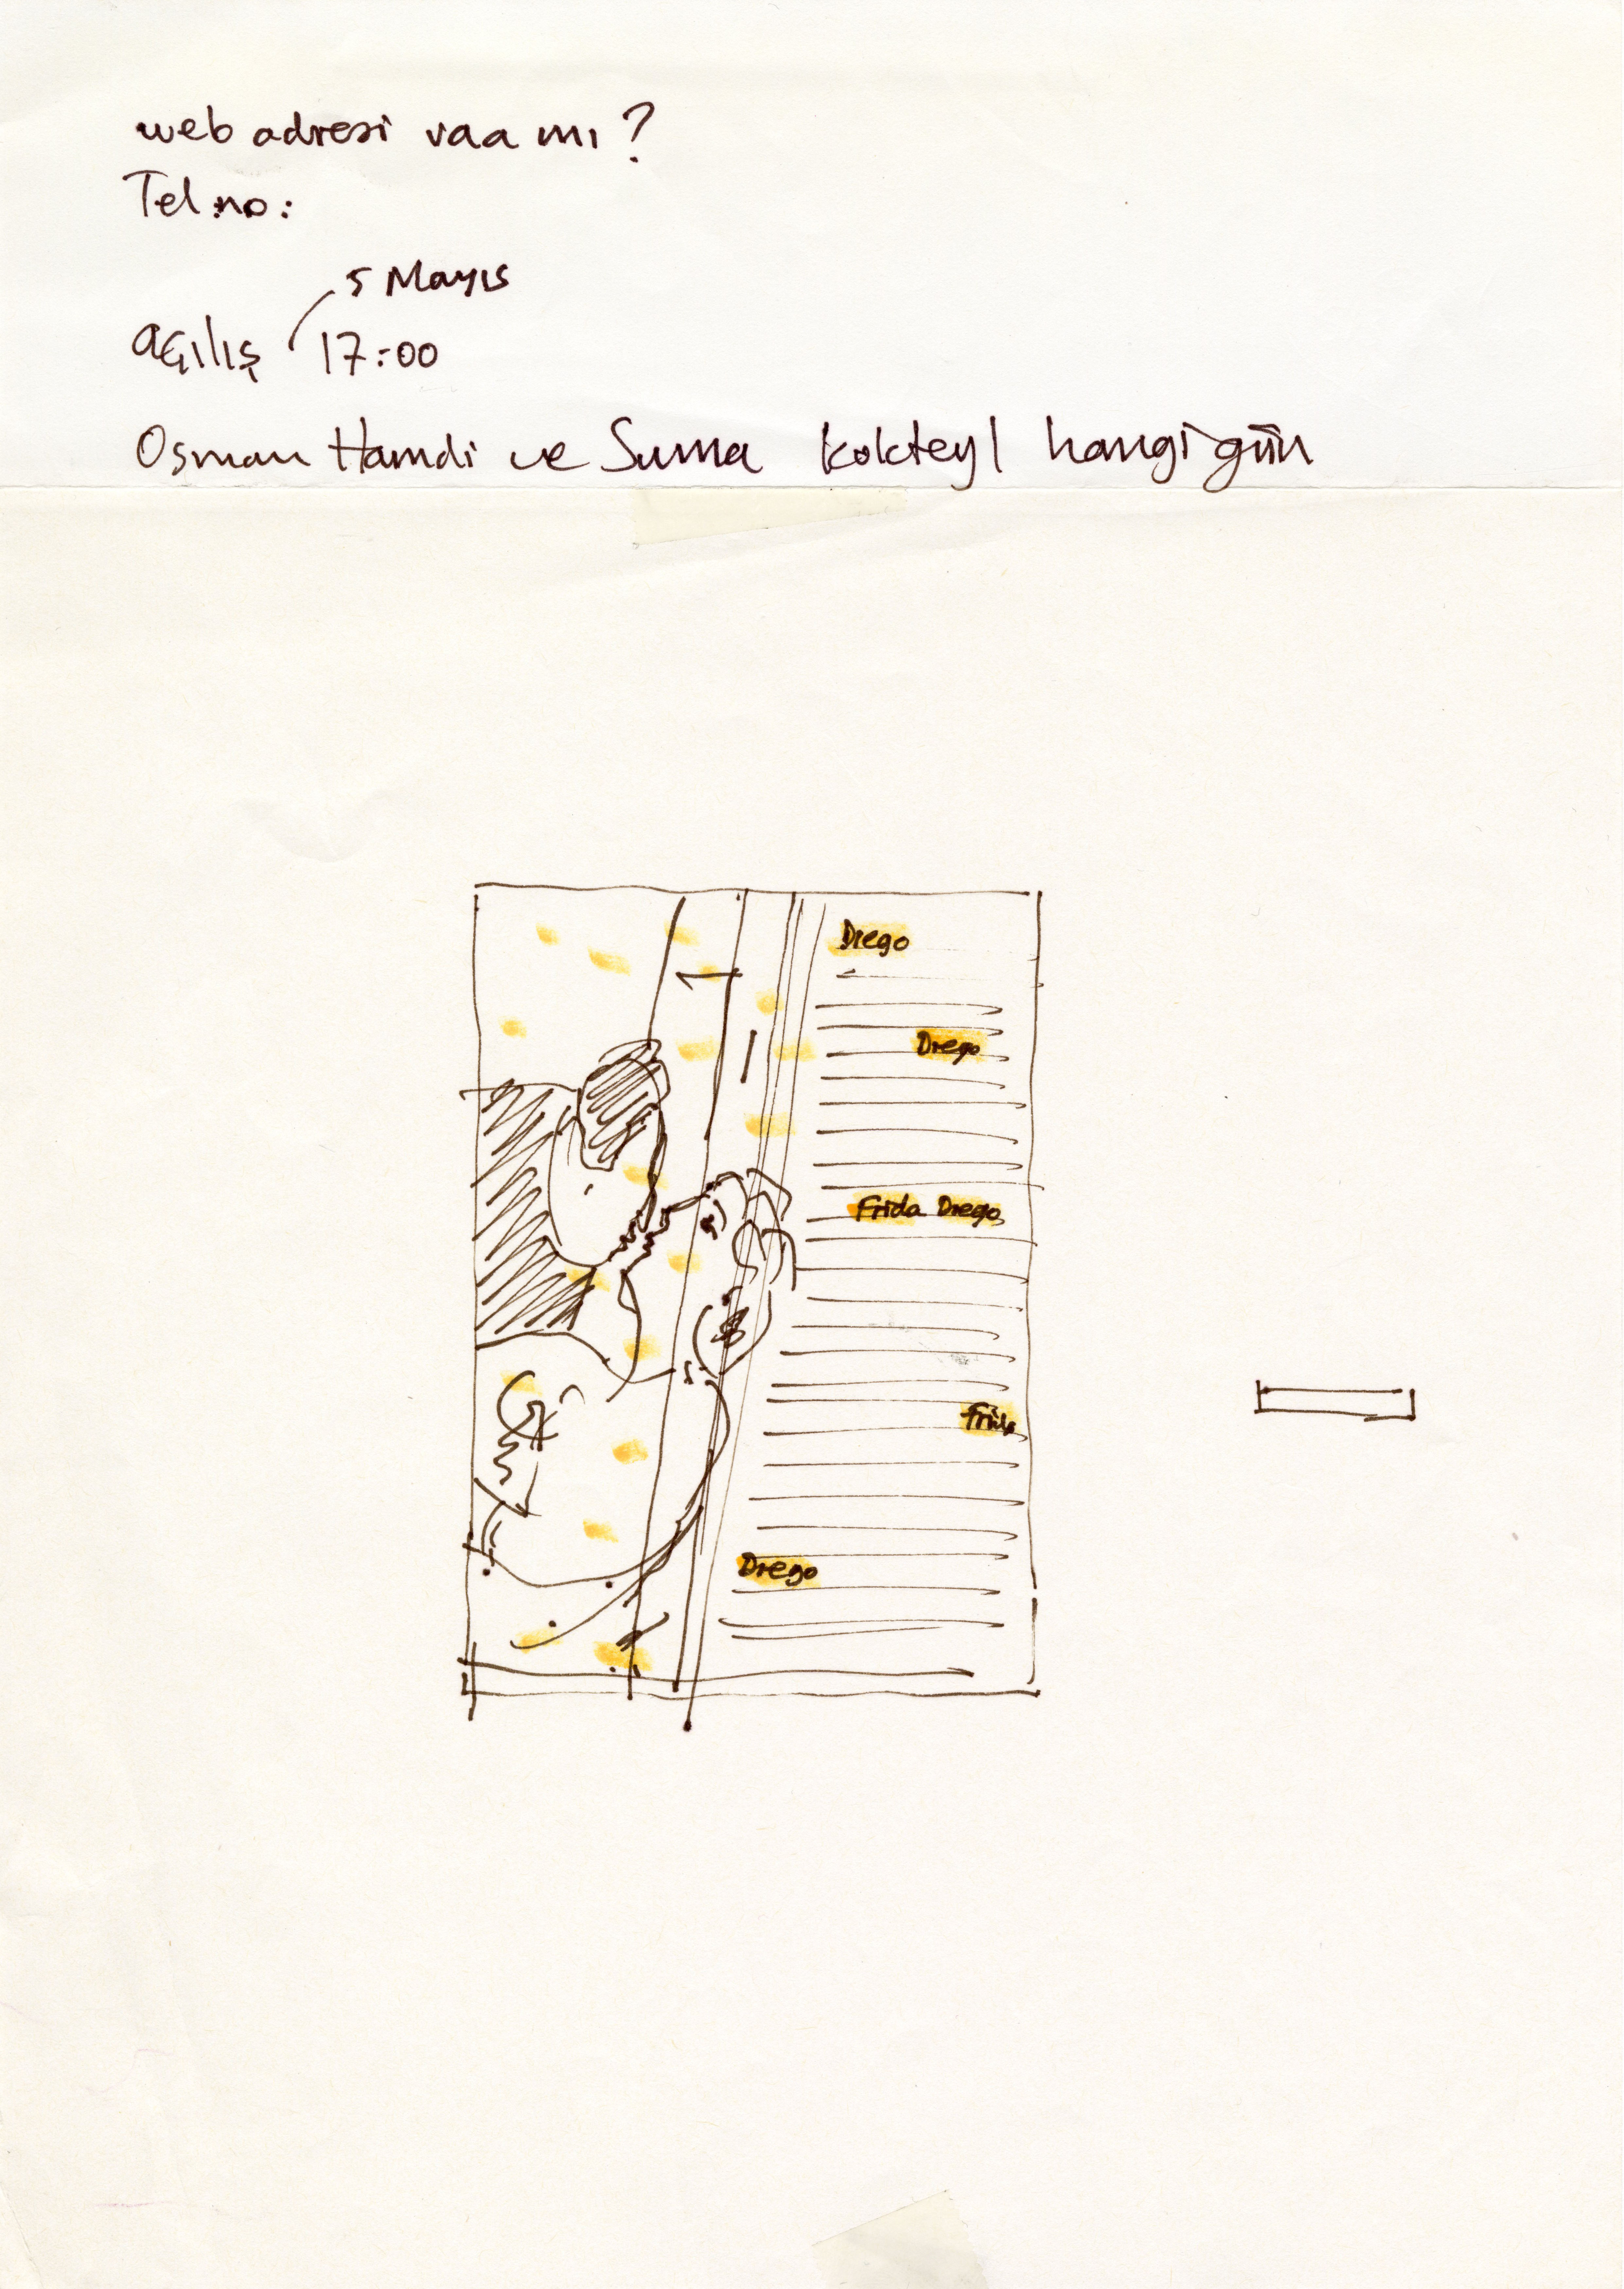 web adresi vaa mı?
Tel no:
5 Mayıs
açılış 17:00
Osman Hamdi ve Suma kokteyl hangi gün
Diego
Diego
Frida Diego
Frida
Diego